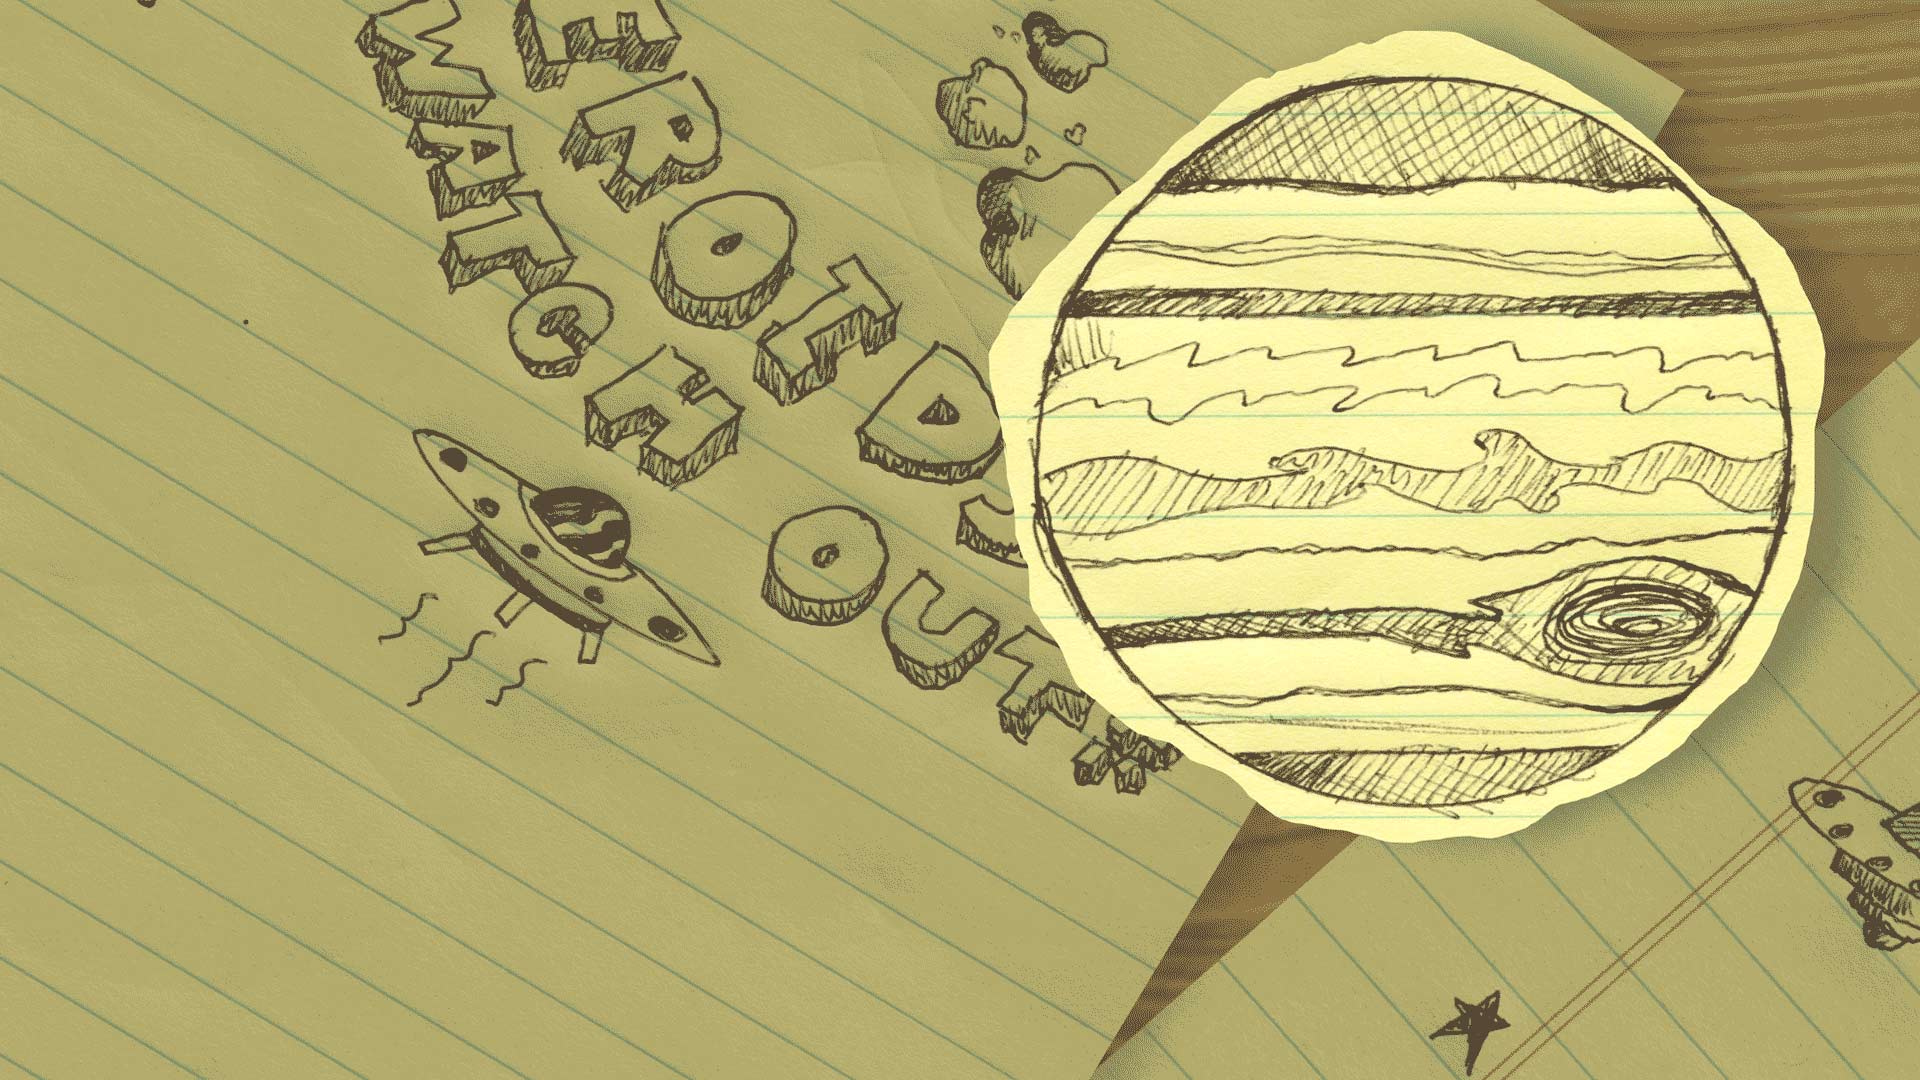 EROIDS
WATCH OUT